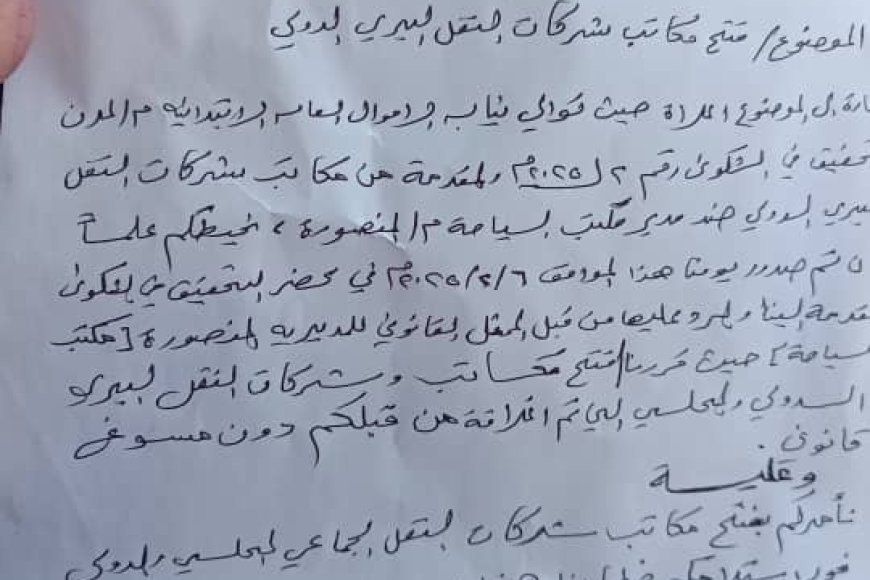 الموضوع/ فتح مكاتب شركات النقل البري الدولي
بالموضوع اعلاة حيث توالي نيابه الاموال العامه الابتدائيه م/عدن
تحقيق في الشكوى رقم ٢ لـ٢٠٢٥م والمقدمة من مكاتب شركات النقل
البري الدولي ضد مدير مكتب السياحة م/المنصورة، نحيطكم علماً
ن تم صدور يومنا هذا الموافق ٢٠٢٥/٢/٦م في محضر التحقيق في الشكوى
قدمة الينا والرد عليها من قبل الممثل القانوني للمديريه المنصورة [مكتب
سياحة] حيث قررنا/فتح مكاتب وشركات النقل البري
الدولي والمحلي التي تم اغلاقة من قبلكم دون مسوغ
قانوني.
وعلية
نأمركم بفتح مكاتب شركات النقل الجماعي المحلي والدولي
فور